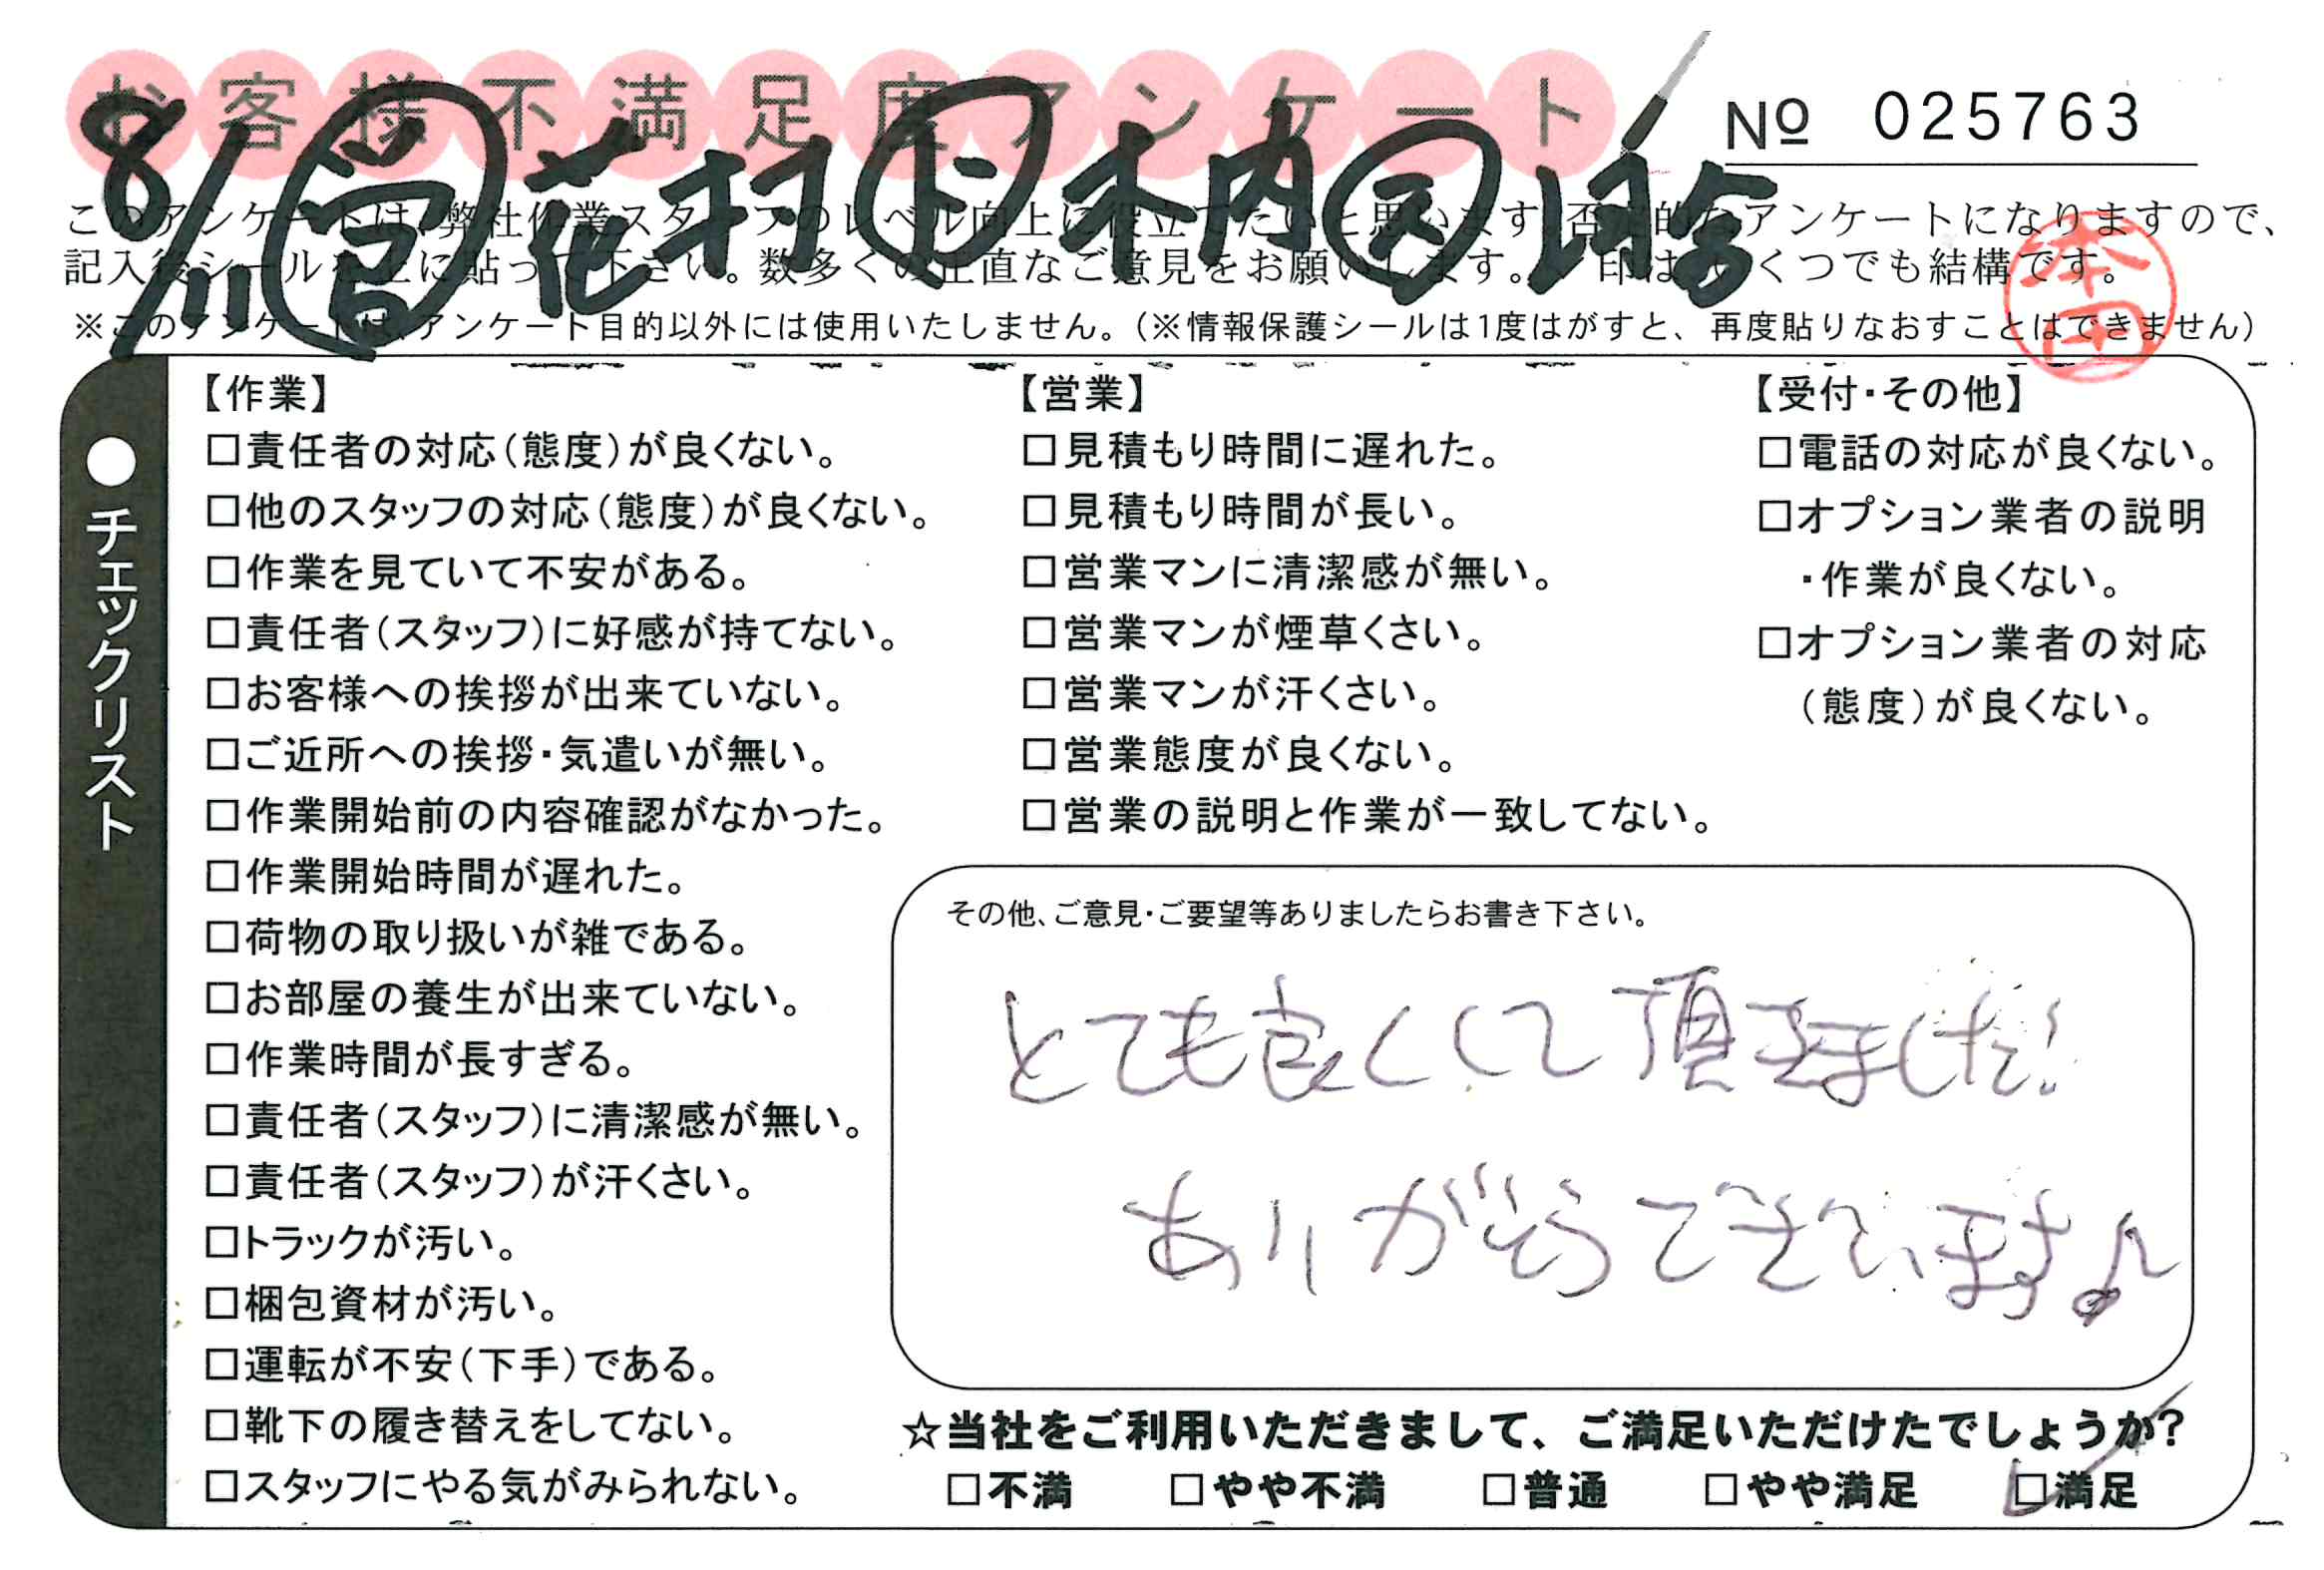 お客様不満足度アンケート
№ 025763
8/11 営 花村 ト 木内
このアンケートは、弊社作業スタッフのレベル向上に役立てたいと思います。否定的なアンケートになりますので、
記入後シールを上に貼って下さい。数多くの正直なご意見をお願いします。 印はいくつでも結構です。
※このアンケートは、アンケート目的以外には使用いたしません。(※情報保護シールは1度はがすと、再度貼りなおすことはできません)
本田
●チェックリスト
【作業】
□責任者の対応(態度)が良くない。
□他のスタッフの対応(態度)が良くない。
□作業を見ていて不安がある。
□責任者(スタッフ)に好感が持てない。
□お客様への挨拶が出来ていない。
□ご近所への挨拶・気遣いが無い。
□作業開始前の内容確認がなかった。
□作業開始時間が遅れた。
□荷物の取り扱いが雑である。
□お部屋の養生が出来ていない。
□作業時間が長すぎる。
□責任者(スタッフ)に清潔感が無い。
□責任者(スタッフ)が汗くさい。
□トラックが汚い。
□梱包資材が汚い。
□運転が不安(下手)である。
□靴下の履き替えをしてない。
□スタッフにやる気がみられない。
【営業】
□見積もり時間に遅れた。
□見積もり時間が長い。
□営業マンに清潔感が無い。
□営業マンが煙草くさい。
□営業マンが汗くさい。
□営業態度が良くない。
□営業の説明と作業が一致してない。
【受付・その他】
□電話の対応が良くない。
□オプション業者の説明
・作業が良くない。
□オプション業者の対応
(態度)が良くない。
その他、ご意見・ご要望等ありましたらお書き下さい。
とても良くして頂きました!
ありがとうございます♪
☆当社をご利用いただきまして、ご満足いただけたでしょうか?
□不満 □やや不満 □普通 □やや満足 ☑満足